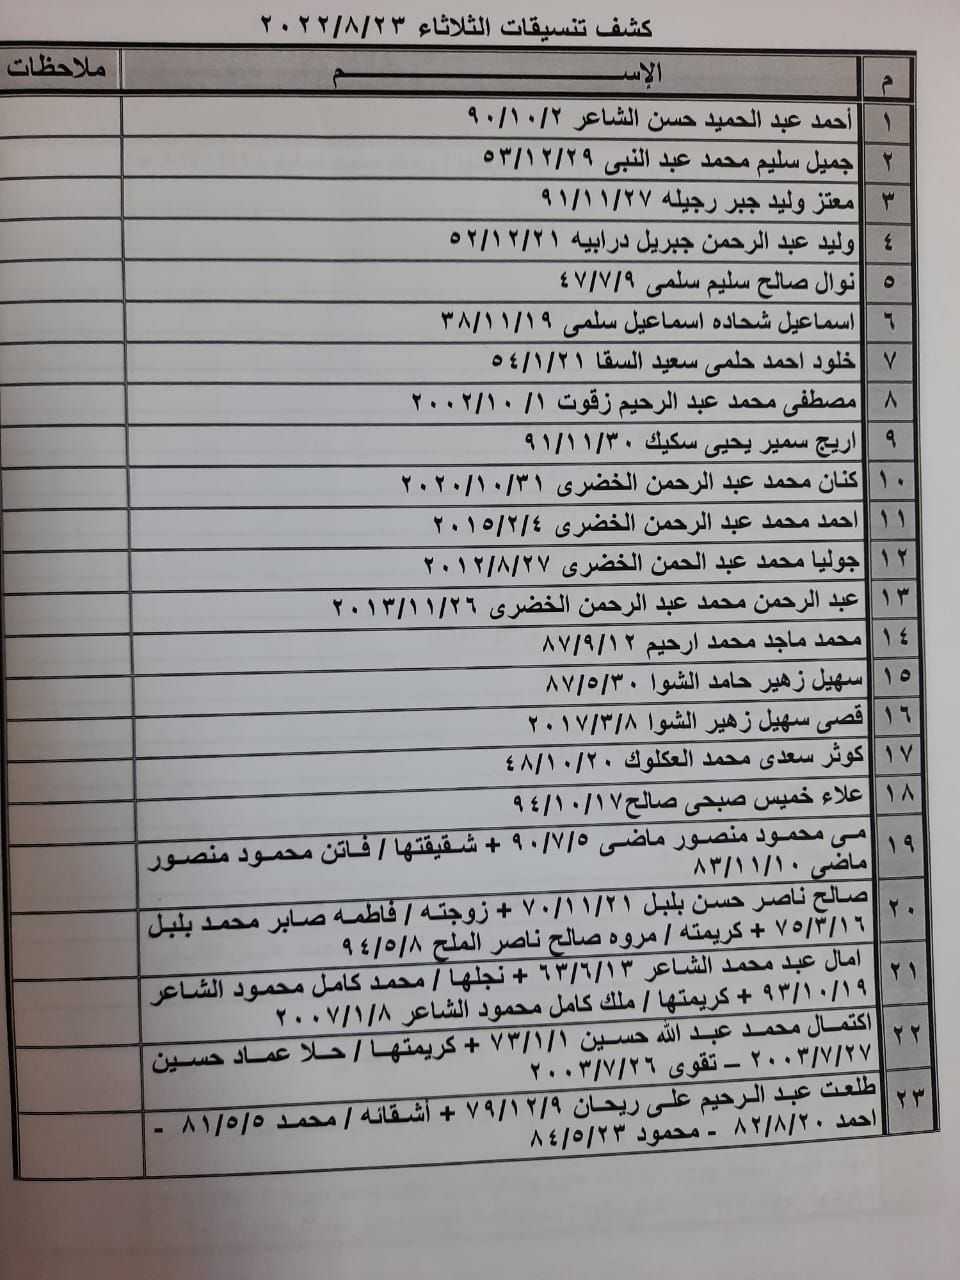 كشف تنسيقات الثلاثاء ٢٠٢٢/٨/٢٣
م الإســـــــــم ملاحظات
١ أحمد عبد الحميد حسن الشاعر ٩٠/١٠/٢
٢ جميل سليم محمد عبد النبى ٥٣/١٢/٢٩
٣ معتز وليد جبر رجيله ٩١/١١/٢٧
٤ وليد عبد الرحمن جبريل درابيه ٥٢/١٢/٢١
٥ نوال صالح سليم سلمى ٤٧/٧/٩
٦ اسماعيل شحاده اسماعيل سلمى ٣٨/١١/١٩
٧ خلود احمد حلمى سعيد السقا ٥٤/١/٢١
٨ مصطفى محمد عبد الرحيم زقوت ١/ ٢٠٠٢/١٠
٩ اريج سمير يحيى سكيك ٩١/١١/٣٠
١٠ كنان محمد عبد الرحمن الخضرى ٢٠٢٠/١٠/٣١
١١ احمد محمد عبد الرحمن الخضرى ٢٠١٥/٢/٤
١٢ جوليا محمد عبد الحمن الخضرى ٢٠١٢/٨/٢٧
١٣ عبد الرحمن محمد عبد الرحمن الخضرى ٢٠١٣/١١/٢٦
١٤ محمد ماجد محمد ارحيم ٨٧/٩/١٢
١٥ سهيل زهير حامد الشوا ٨٧/٥/٣٠
١٦ قصى سهيل زهير الشوا ٢٠١٧/٣/٨
١٧ كوثر سعدى محمد العكلوك ٤٨/١٠/٢٠
١٨ علاء خميس صبحى صالح٩٤/١٠/١٧
١٩ مى محمود منصور ماضى ٩٠/٧/٥ + شقيقتها / فاتن محمود منصور
ماضى ٨٣/١١/١٠
٢٠ صالح ناصر حسن بلبل ٧٠/١١/٢١ + زوجته / فاطمه صابر محمد بلبل
٧٥/٣/١٦ + كريمته / مروه صالح ناصر الملح ٩٤/٥/٨
٢١ امال عبد محمد الشاعر ٦٣/٦/١٣ + نجلها / محمد كامل محمود الشاعر
٩٣/١٠/١٩ + كريمتها / ملك كامل محمود الشاعر ٢٠٠٧/١/٨
٢٢ اكتمال محمد عبد الله حسين ٧٣/١/١ + كريمتها / حلا عماد حسين
٢٠٠٣/٧/٢٧ – تقوى ٢٠٠٣/٧/٢٦
٢٣ طلعت عبد الرحيم على ريحان ٧٩/١٢/٩ + أشقائه / محمد ٨١/٥/٥ -
احمد ٨٢/٨/٢٠ - محمود ٨٤/٥/٢٣